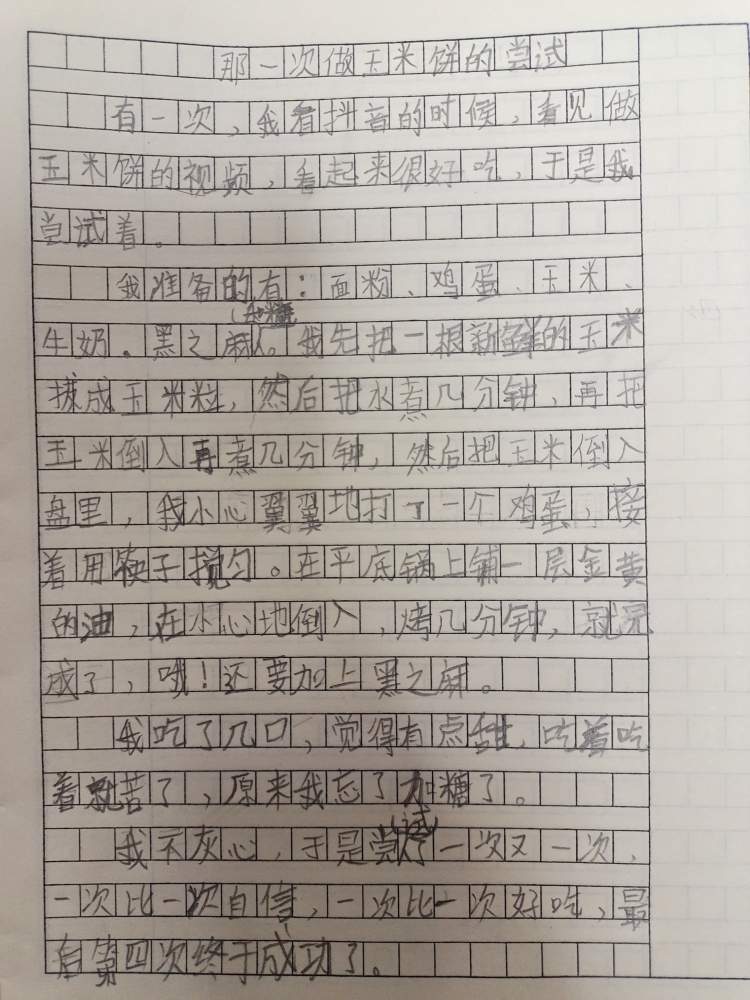 那一次做玉米饼的尝试
有一次，我看抖音的时候，看见做
玉米饼的视频，看起来很好吃，于是我
尝试着。
我准备的有：面粉、鸡蛋、玉米、
和糖
牛奶。黑之麻。我先把一根新鲜的玉米
揉成玉米粒，然后把水煮几分钟，再把
玉米倒入再煮几分钟，然后把玉米倒入
盘里，我小心翼翼地打了一个鸡蛋，接
着用筷子搅匀。在平底锅上铺一层金黄
的油，在小心地倒入，烤几分钟，就完
成了，哦！还要加上黑之麻。
我吃了几口，觉得有点甜，吃着吃
着就苦了，原来我忘了加糖了。
试
我不灰心，于是尝了一次又一次，
一次比一次自信，一次比一次好吃，最
后第四次终于成功了。